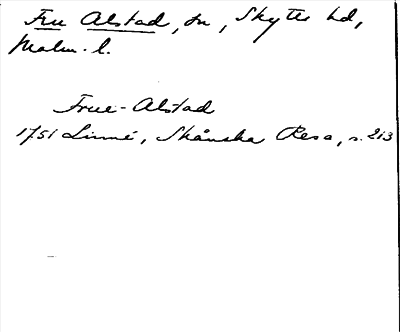 Fru Alstad, sn, Skytts hd,
Malm. l.
Frue-Alstad
1751 Linné, Skånska Resa, s. 213